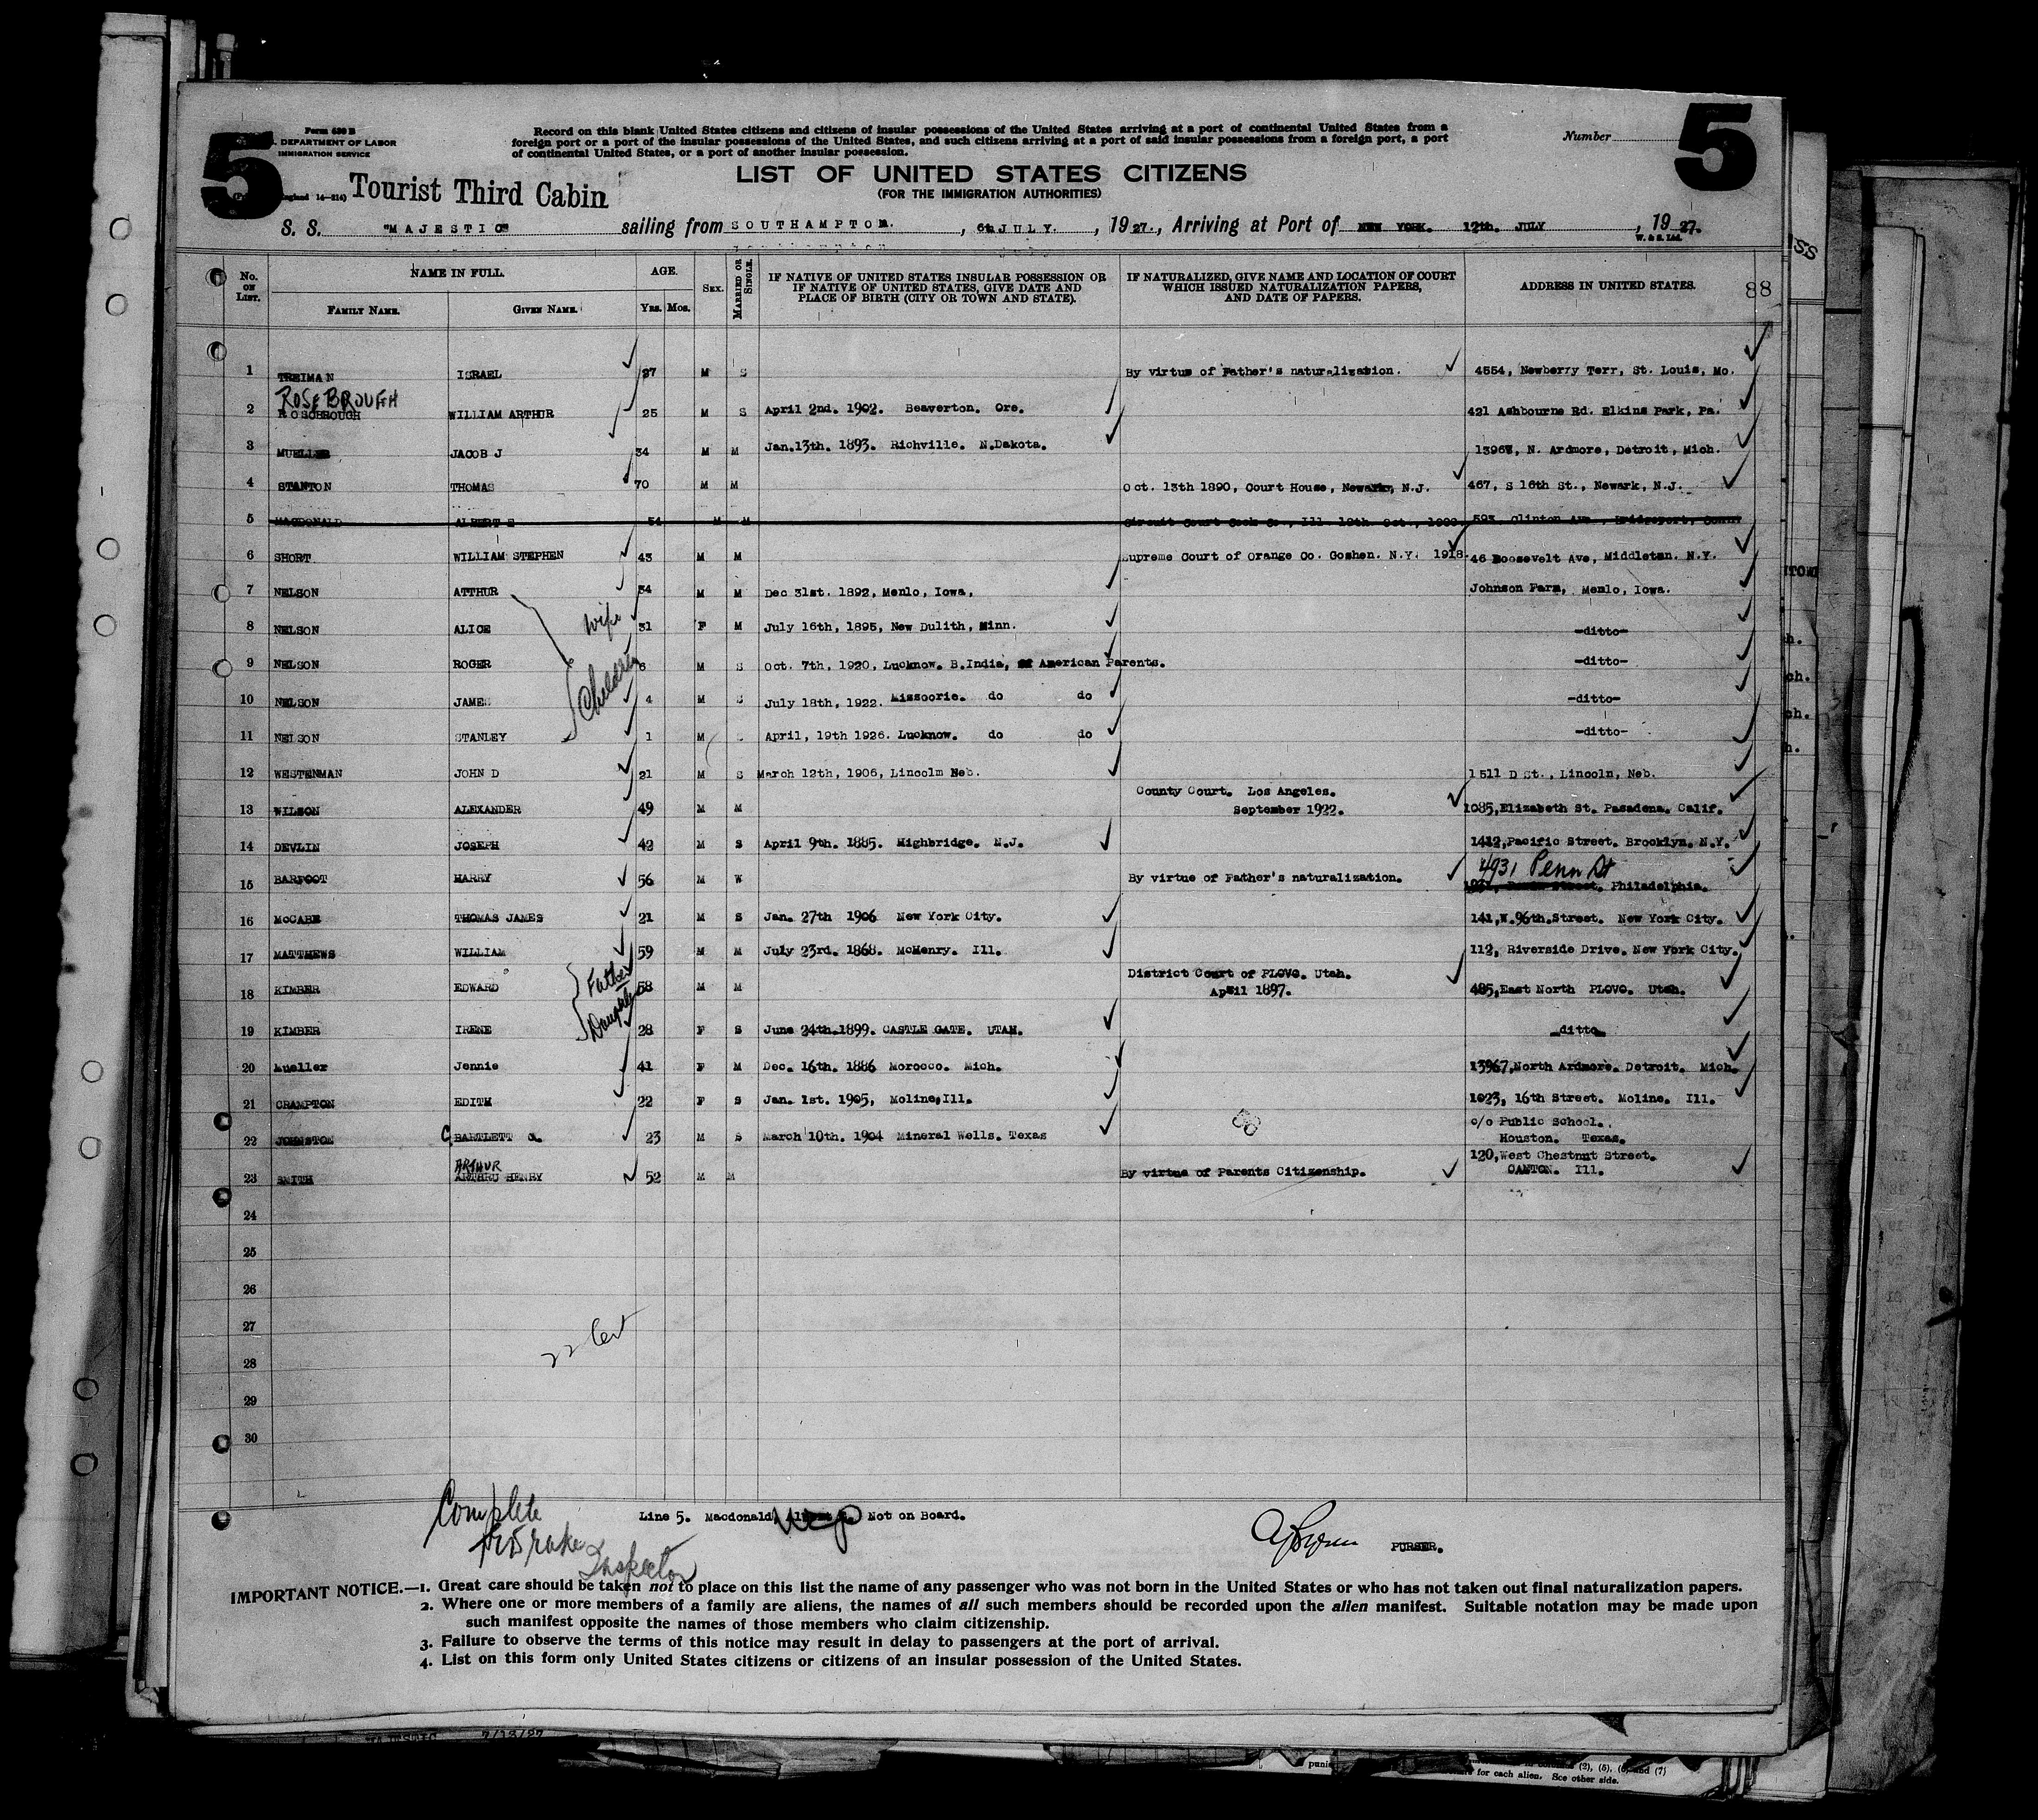 5
5
Form 630 B
DEPARTMENT OF LABOR
IMMIGRATION SERVICE
Record on this blank United States citizens and citizens of insular possessions of the United States arriving at a port of continental United States from a
foreign port or a port of the insular possessions of the United States, and such citizens arriving at a port of said insular possessions from a foreign port, a port
of continental United States, or a port of another insular possession.
Number
LIST OF UNITED STATES CITIZENS
(FOR THE IMMIGRATION AUTHORITIES)
Tourist Third Cabin
S. S. "MAJESTIC" sailing from SOUTHAMPTON. , 6th JULY. , 1927., Arriving at Port of NEW YORK. 12th. JULY , 1927.
W. & S. Ltd.
No. ON LIST. NAME IN FULL. AGE. SEX. MARRIED OR SINGLE. IF NATIVE OF UNITED STATES INSULAR POSSESSION OR IF NATIVE OF UNITED STATES, GIVE DATE AND PLACE OF BIRTH (CITY OR TOWN AND STATE). IF NATURALIZED, GIVE NAME AND LOCATION OF COURT WHICH ISSUED NATURALIZATION PAPERS, AND DATE OF PAPERS. ADDRESS IN UNITED STATES. 88
FAMILY NAME. GIVEN NAME. YRS. MOS.
1 TREIMAN ISRAEL 27 M S By virtue of Father's naturalization. 4554, Newberry Terr, St. Louis, Mo.
ROSEBROUGH
2 ROSOBROUGH WILLIAM ARTHUR 25 M S April 2nd. 1902. Beaverton. Ore. 421 Ashbourne Rd. Elkins Park, Pa.
3 MUELLER JACOB J 34 M M Jan.13th. 1893. Richville. N.Dakota. 13967, N. Ardmore, Detroit, Mich.
4 STANTON THOMAS 70 M M Oct. 13th 1890, Court House, Newark, N.J. 467, S 16th St., Newark, N.J.
5 MACDONALD ALBERT E 54 M M Circuit Court Cook Co., Ill 19th. Oct., 593, Clinton Ave., Bridgeport, Conn
6 SHORT. WILLIAM STEPHEN 43 M M Supreme Court of Orange Co. Goshen. N.Y. 1918. 46 Roosevelt Ave, Middletan. N.Y.
7 NELSON ATTHUR 34 M M Dec 31st. 1892, Menlo, Iowa, Johnson Farm, Menlo, Iowa.
8 NELSON ALICE wife 31 F M July 16th, 1895, New Dulith, Minn. -ditto-
9 NELSON ROGER Children 6 M S Oct. 7th, 1920, Lucknow. B.India, of American Parents. -ditto-
10 NELSON JAMES 4 M S July 18th, 1922. Missoorie. do do -ditto-
11 NELSON STANLEY 1 M S April, 19th 1926. Lucknow. do do -ditto-
12 WESTENMAN JOHN D 21 M S March 12th, 1906, Lincolm Neb. 1511 D St., Lincoln, Neb.
13 WILSON ALEXANDER 49 M M County Court. Los Angeles. September 1922. 1085, Elizabeth St. Pasadena. Calif.
14 DEVLIN JOSEPH 42 M S April 9th. 1885. Highbridge. N.J. 1412, Pacific Street. Brooklyn. N.Y.
4931 Penn St
15 BARFOOT HARRY 56 M W By virtue of Father's naturalization. Street. Philadelphia.
16 McCABE THOMAS JAMES 21 M S Jan. 27th 1906 New York City. 141, W. 96th. Street. New York City.
17 MATTHEWS WILLIAM 59 M M July 23rd. 1868. McHenry. Ill. 112, Riverside Drive. New York City.
18 KIMBER EDWARD Father 58 M M District Court of PLOVO. Utah. April 1897. 485, East North PLOVO. Utah.
19 KIMBER IRENE Daughter 28 F S June 24th. 1899. CASTLE GATE. UTAH. ditto
20 Mueller Jennie 41 F M Dec. 16th. 1886 Morocco. Mich. 13967, North Ardmore. Detroit. Mich.
21 CRAMPTON EDITH 22 F S Jan. 1st. 1905, Moline, Ill. 1023, 16th Street. Moline. Ill.
22 JOHNSTON C. BARTLETT 23 M S March 10th. 1904 Mineral Wells. Texas 88 c/o Public School. Houston. Texas.
ARTHUR
23 SMITH ARTHRU HENRY 52 M M By virtue of Parents Citizenship. 120, West Chestnut Street. CANTON. Ill.
24
25
26
27
28
29
30
Complete
Line 5. Macdonald, Not on Board.
Inspector
PURSER.
IMPORTANT NOTICE.—1. Great care should be taken not to place on this list the name of any passenger who was not born in the United States or who has not taken out final naturalization papers.
2. Where one or more members of a family are aliens, the names of all such members should be recorded upon the alien manifest. Suitable notation may be made upon
such manifest opposite the names of those members who claim citizenship.
3. Failure to observe the terms of this notice may result in delay to passengers at the port of arrival.
4. List on this form only United States citizens or citizens of an insular possession of the United States.
MAJESTIC 7/13/27
(2), (5), (6) and (7)
for each alien. See other side.